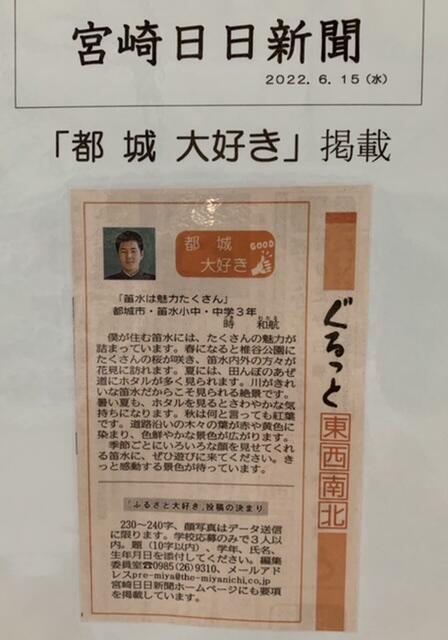 宮崎日日新聞
2022．6．15（水）
「都 城 大好き」掲載
都 城
大好き
GOOD
ぐるっと
東西南北
「笛水は魅力たくさん」
都城市・笛水小中・中学３年
時 和航
僕が住む笛水には、たくさんの魅力が
詰まっています。春になると椎谷公園に
たくさんの桜が咲き、笛水内外の方々が
花見に訪れます。夏には、田んぼのあぜ
道にホタルが多く見られます。川がきれ
いな笛水だからこそ見られる絶景です。
暑い夏も、ホタルを見るとさわやかな気
持ちになります。秋は何と言っても紅葉
です。道路沿いの木々の葉が赤や黄色に
染まり、色鮮やかな景色が広がります。
季節ごとにいろいろな顔を見せてくれ
る笛水に、ぜひ遊びに来てください。き
っと感動する景色が待っています。
「ふるさと大好き」投稿の決まり
230～240字、顔写真はデータ送信
に限ります。学校応募のみで３人以
内。題（10字以内）、学年、氏名、
生年月日を添付してください。編集
委員室☎0985(26)9310、メールアド
レスpre-miya@the-miyanichi.co.jp
宮崎日日新聞ホームページにも要項
を掲載しています。